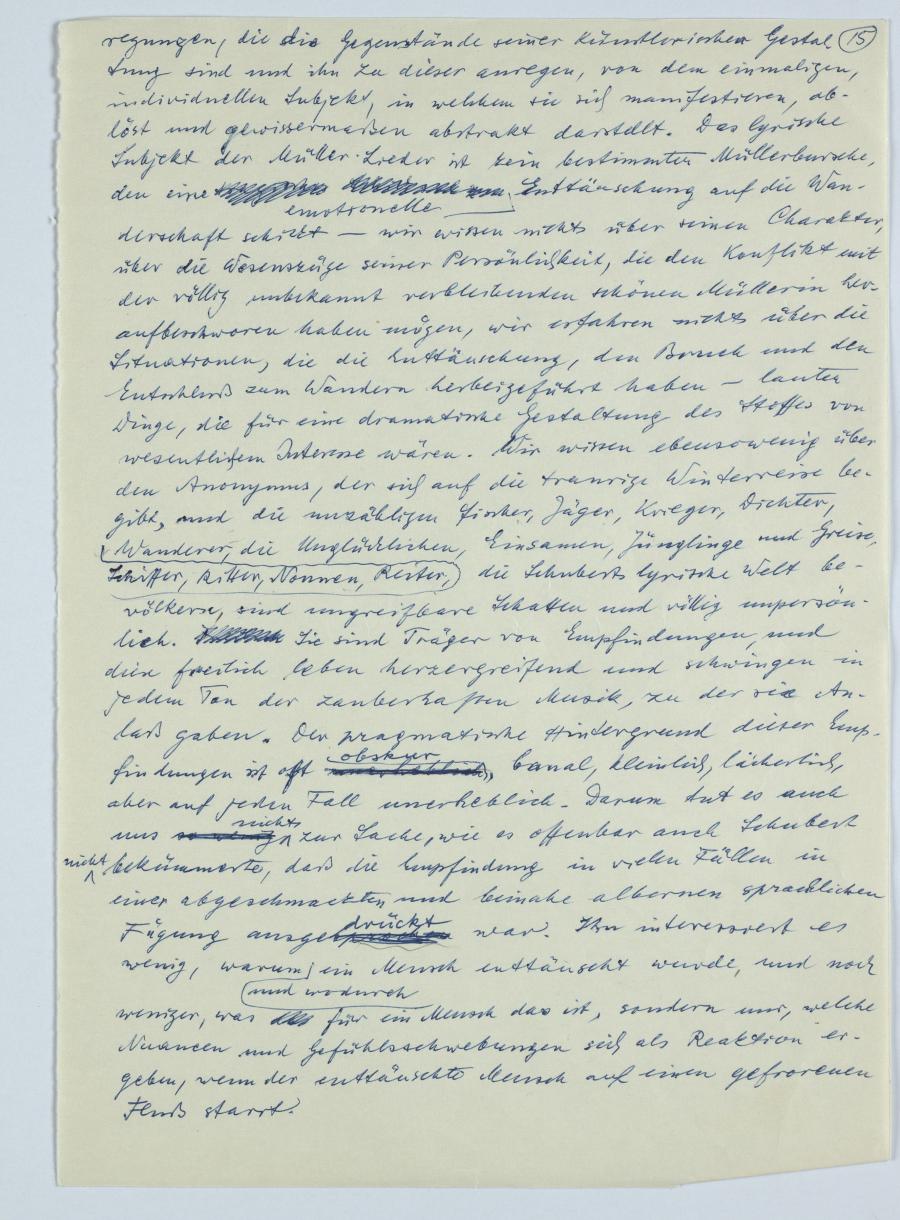 regungen, die die Gegenstände seiner künstlerischen Gestal 15
tung sind und ihn zu dieser anregen, von dem einmaligen,
individuellen Subjekt, in welchem sie sich manifestieren, ab-
löst und gewissermaßen abstrakt darstellt. Das lyrische
Subjekt der Müller-Lieder ist kein bestimmter Müllerbursche,
den eine Enttäuschung auf die Wan-
emotionelle
derschaft schickt — wir wissen nichts über seinen Charakter,
über die Wesenszüge seiner Persönlichkeit, die den Konflikt mit
der völlig unbekannt verbleibenden schönen Müllerin her-
aufbeschworen haben mögen, wir erfahren nichts über die
Situationen, die die Enttäuschung, den Bruch und den
Entschluß zum Wandern herbeigeführt haben — lauter
Dinge, die für eine dramatische Gestaltung des Stoffes von
wesentlichem Interesse wären. Wir wissen ebensowenig über
den Anonymus, der sich auf die traurige Winterreise be-
gibt, und die unzähligen Fischer, Jäger, Krieger, Dichter,
Wanderer, die Unglücklichen, Einsamen, Jünglinge und Greise,
Schiffer, Ritter, Nonnen, Reiter, die Schuberts lyrische Welt be-
völkern, sind ungreifbare Schatten und völlig unpersön-
lich. Sie sind Träger von Empfindungen, und
diese freilich leben herzergreifend und schwingen in
jedem Ton der zauberhaften Musik, zu der sie An-
laß gaben. Der pragmatische Hintergrund dieser Emp-
findungen ist oft obskur, banal, kleinlich, lächerlich,
aber auf jeden Fall unerheblich. Darum tut es auch
uns so wenig nichts zur Sache, wie es offenbar auch Schubert
nicht bekümmerte, daß die Empfindung in vielen Fällen in
einer abgeschmackten und beinahe albernen sprachlichen
Fügung ausgedrückt war. Ihn interessiert es
wenig, warum ein Mensch enttäuscht wurde, und noch
und wodurch
weniger, was für ein Mensch das ist, sondern nur, welche
Nuancen und Gefühlsschwebungen sich als Reaktion er-
geben, wenn der enttäuschte Mensch auf einen gefrorenen
Fluß starrt.